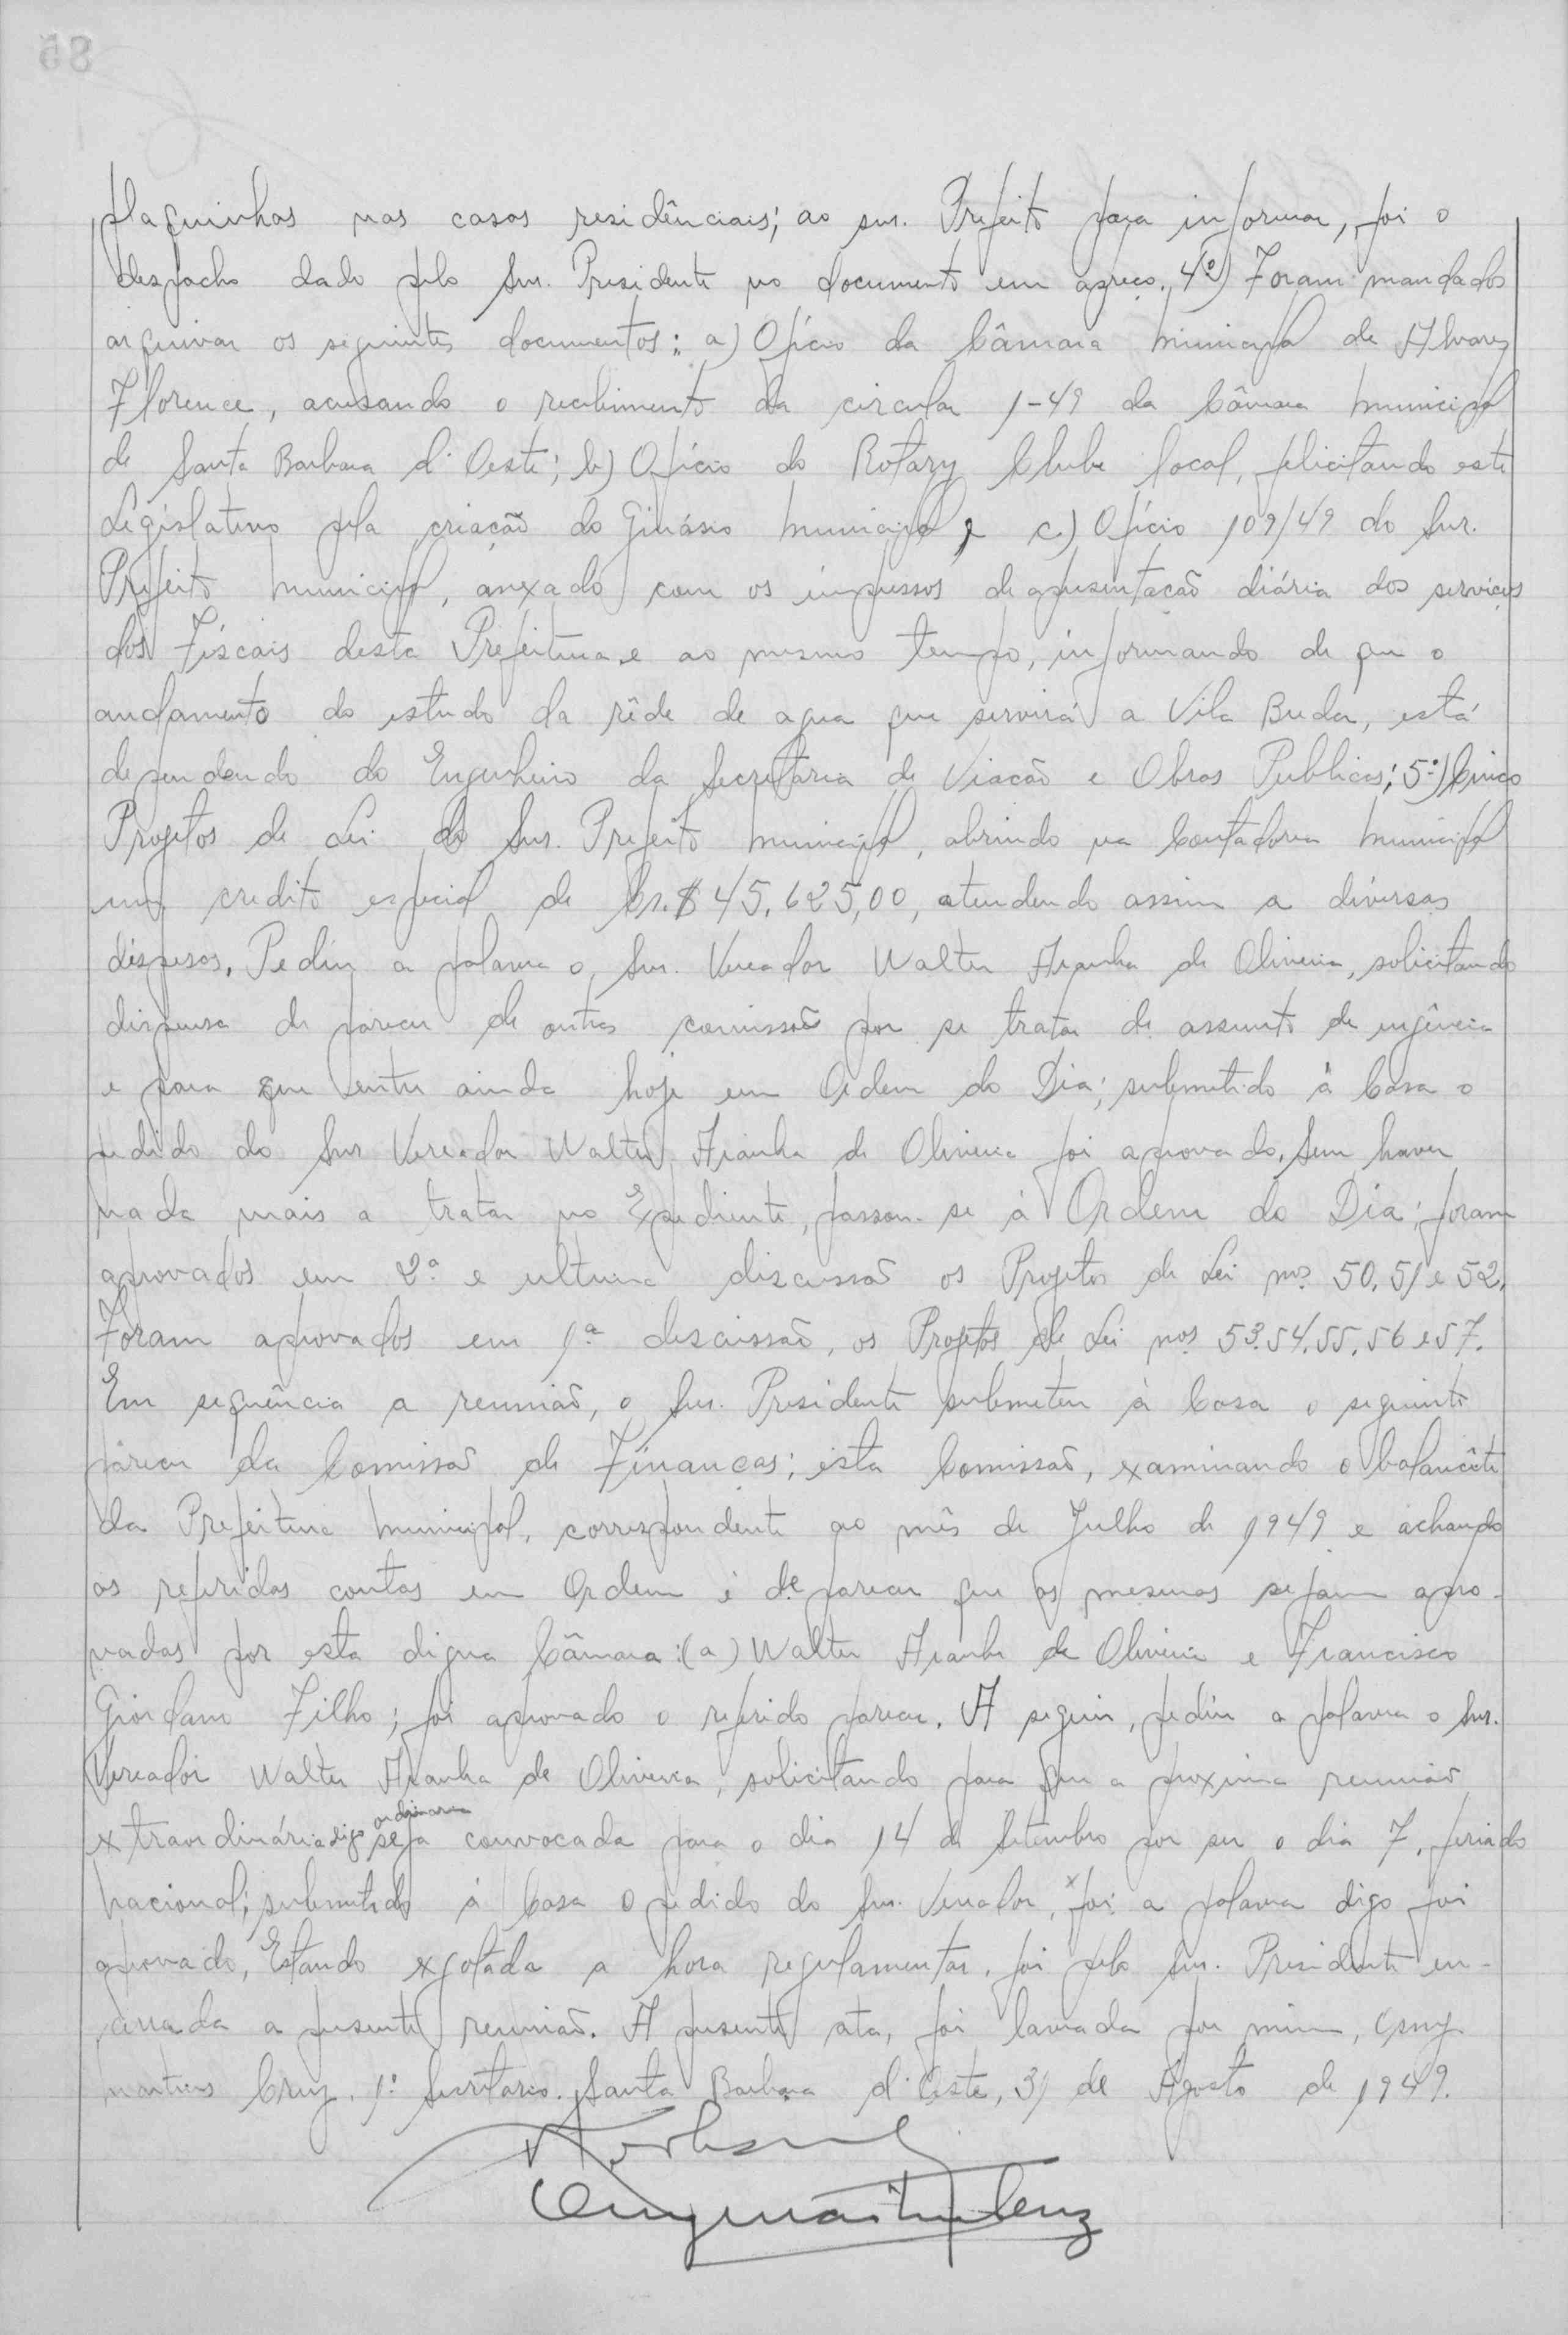 plaquinhas nas casas residênciais; ao snr. Prefeito para informar, foi o
despacho dado pelo Snr. Presidente no documento em apreço. 4º) Foram mandados
arquivar os seguintes documentos: a) Ofício da Câmara Municipal de Alvares
Florence, acusando o recebimento da circular 1-49 da Câmara Municipal
de Santa Barbara d'Oeste; b) Ofício do Rotary Clube local, felicitando este
Legislativo pela criação do Ginásio Municipal, e c) Ofício 109/49 do Snr.
Prefeito Municipal, anexado com os impressos de apresentação diária dos serviços
dos Fiscais desta Prefeitura e ao mesmo tempo, informando de que o
andamento do estudo da rêde de agua que servirá a Vila Buda, está
dependendo do Engenheiro da Secretaria de Viação e Obras Publicas; 5º) Cinco
Projetos de Lei do Snr. Prefeito Municipal, abrindo na Contadoria Municipal
um credito especial de Cr.$ 45.625,00, atendendo assim a diversas
dispesas. Pediu a palavra o Snr. Vereador Walter Aranha de Oliveira, solicitando
dispensa de parecer de outras comissão por se tratar de assunto de urgência
e para que entre ainda hoje em Ordem do Dia; submetido à Casa o
pedido do Snr Vereador Walter Aranha de Oliveira foi aprovado. Sem haver
nada mais a tratar no Expediente, passou-se à Ordem do Dia: foram
aprovados em 2ª e ultima discussão os Projetos de Lei nos. 50, 51 e 52.
Foram aprovados em 1ª discussão, os Projetos de Lei nos. 53.54.55.56 e 57.
Em sequência a reunião, o Snr. Presidente submeteu à Casa o seguinte
parecer da Comissão de Finanças; esta Comissão, examinando o balancête
da Prefeitura Municipal, correspondente ao mês de Julho de 1949 e achando
as referidas contas em Ordem é de parecer que as mesmas sejam apro-
vadas por esta digna Câmara: (a) Walter Aranha de Oliveira e Francisco
Giordano Filho; foi aprovado o referido parecer. A seguir, pediu a palavra o Snr.
Vereador Walter Aranha de Oliveira, solicitando para que a proxima reunião
extraordinária digo ordinaria seja convocada para o dia 14 de Setembro por ser o dia 7, feriado
nacional; submetido à Casa o pedido do Snr. Vereador, foi a palavra digo foi
aprovado. Estando exgotada a hora regulamentar, foi pelo Snr. Presidente en-
cerrada a presente reunião. A presente ata, foi lavrada por mim, Osny
Martins Cruz, 1º Secretario. Santa Barbara d'Oeste, 31 de Agosto de 1949.
Osny Martins Cruz
85